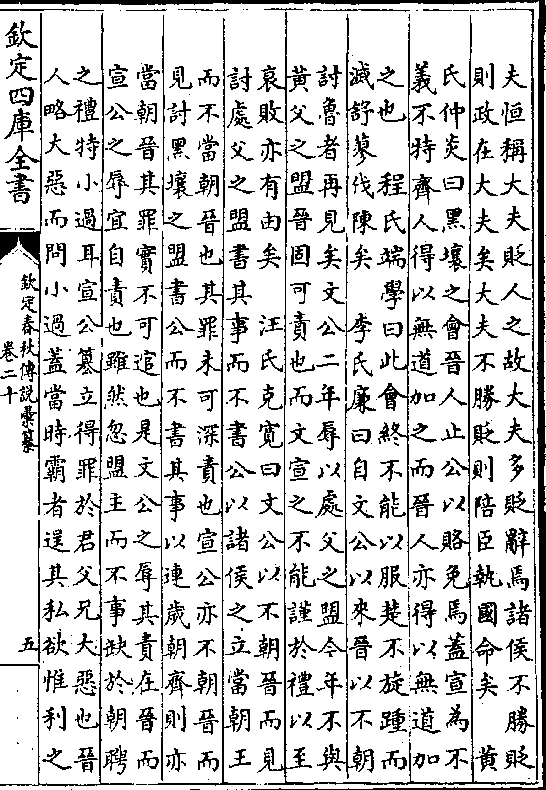 夫恒稱大夫貶人之故大夫多貶辭焉諸侯不勝貶
則政在大夫矣大夫不勝貶則陪臣執國命矣　黄
氏仲炎曰黑壤之會晉人止公以賂免焉蓋宣為不
義不特齊人得以無道加之而晉人亦得以無道加
之也　程氏端學曰此會終不能以服楚不旋踵而
滅舒蓼伐陳矣　李氏廉曰自文公以來晉以不朝
討魯者再見矣文公二年辱以處父之盟今年不與
黄父之盟晉固可責也而文宣之不能謹於禮以至
哀敗亦有由矣　汪氏克寛曰文公以不朝晉而見
討處父之盟書其事而不書公以諸侯之立當朝王
而不當朝晉也其罪未可深責也宣公亦不朝晉而
見討黑壤之盟書公而不書其事以連歲朝齊則亦
當朝晉其罪實不可逭也是文公之辱其責在晉而
宣公之辱宜自責也雖然忽盟主而不事缺於朝聘
之禮特小過耳宣公簒立得罪於君父兄大惡也晉
人略大惡而問小過蓋當時霸者逞其私欲惟利之
欽定四庫全書
欽定春秋傳說彙纂
卷二十
五